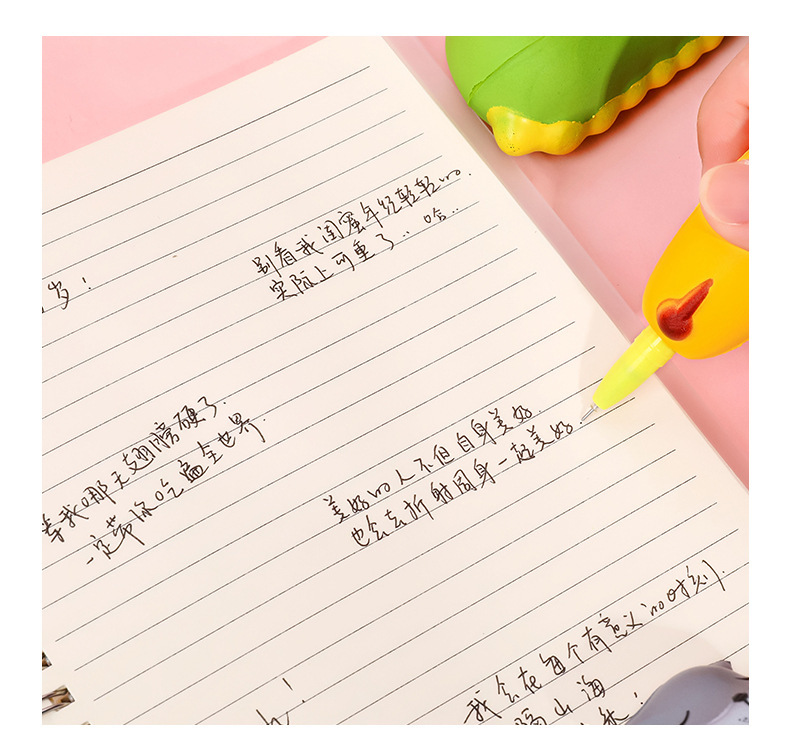 别看我闺蜜年纪轻轻的.
实际上可重了.. 哈..
岁!
等我哪天翅膀硬了.
一定带你吃遍全世界.
美好的人不但自身美好.
也会去折射周身一起美好.
我会在每个有意义的时刻.
隔山海